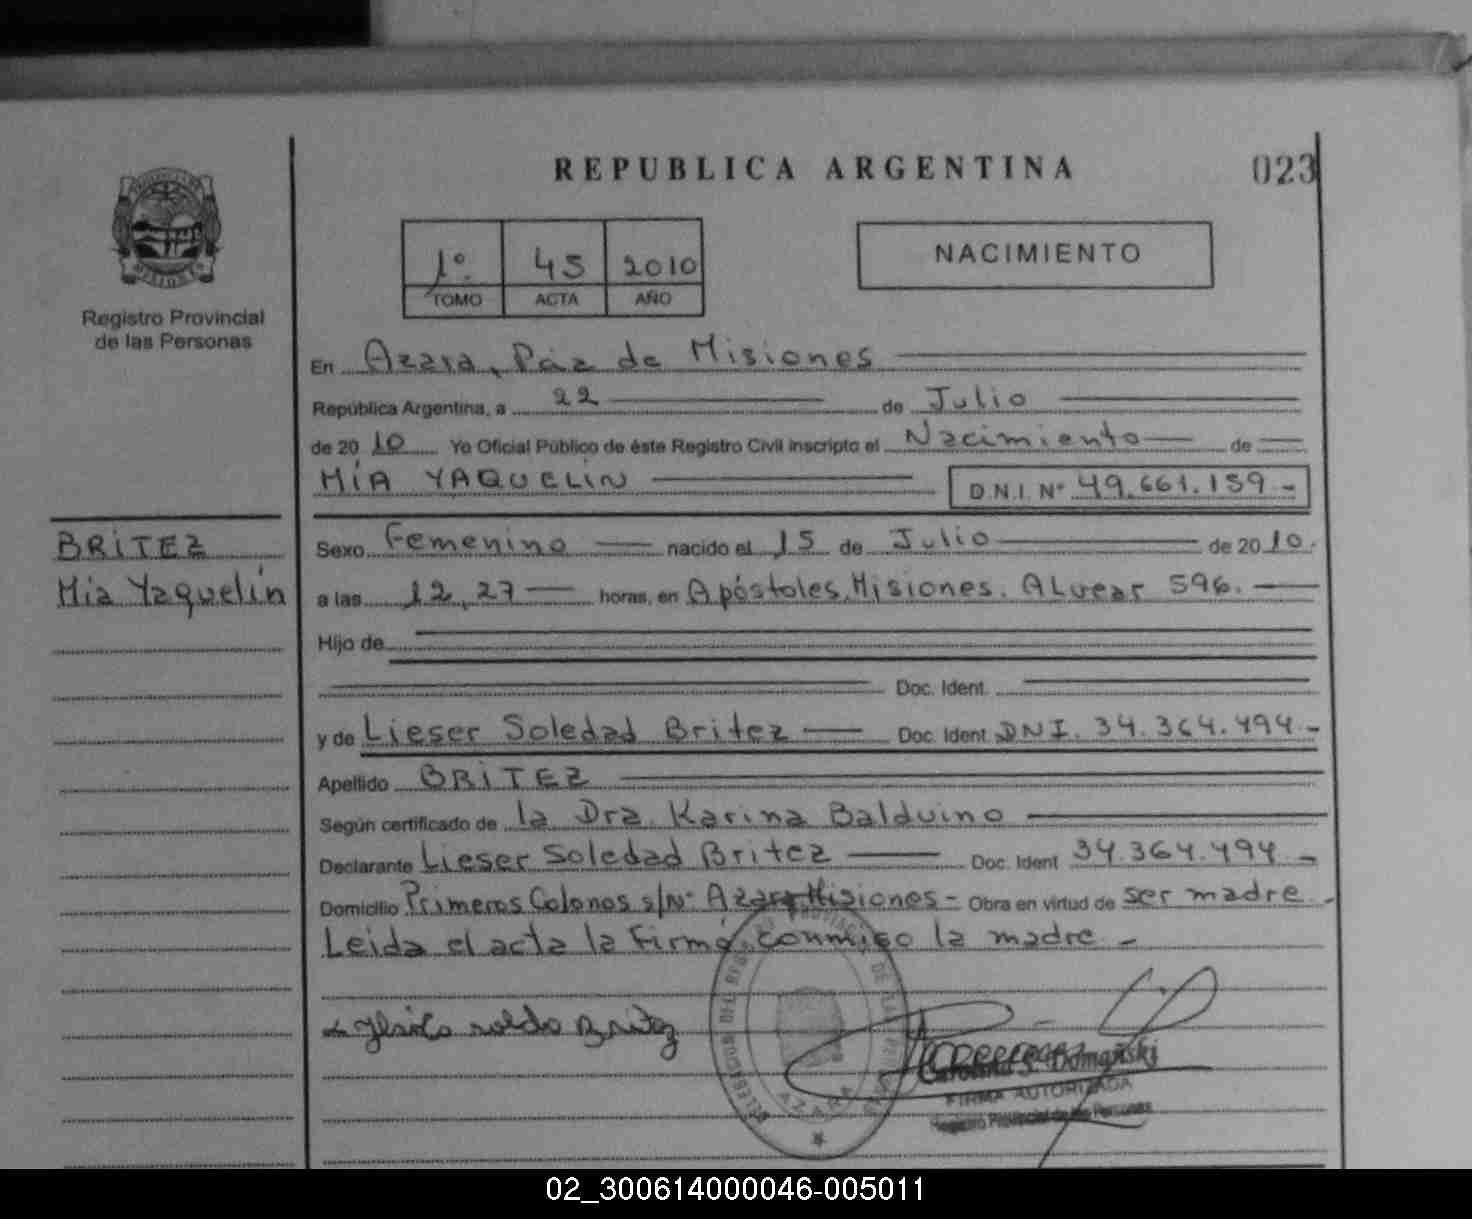 REPUBLICA ARGENTINA
023
1º. 45 2010
TOMO ACTA AÑO
NACIMIENTO
Registro Provincial
de las Personas
En Azara, Pcia de Misiones
República Argentina, a 22 de Julio
de 2010 Yo Oficial Público de éste Registro Civil inscripto el Nacimiento de
MÍA YAQUELIN D.N.I. Nº 49.661.159.-
BRITEZ
Mia Yaquelin
Sexo Femenino nacido el 15 de Julio de 2010.
a las 12,27 horas, en Apóstoles, Misiones. Alvear 596.
Hijo de
Doc. Ident.
y de Lieser Soledad Britez Doc. Ident. DNI. 34.364.494.-
Apellido BRITEZ
Según certificado de la Dra. Karina Balduino
Declarante Lieser Soledad Britez Doc. Ident 34.364.494.-
Domicilio Primeros Colonos s/Nº Azara Misiones - Obra en virtud de ser madre.-
Leida el acta la Firmó conmigo la madre -
Britez
Carolina S. Domañski
FIRMA AUTORIZADA
Registro Provincial de las Personas
AZARA
02_300614000046-005011